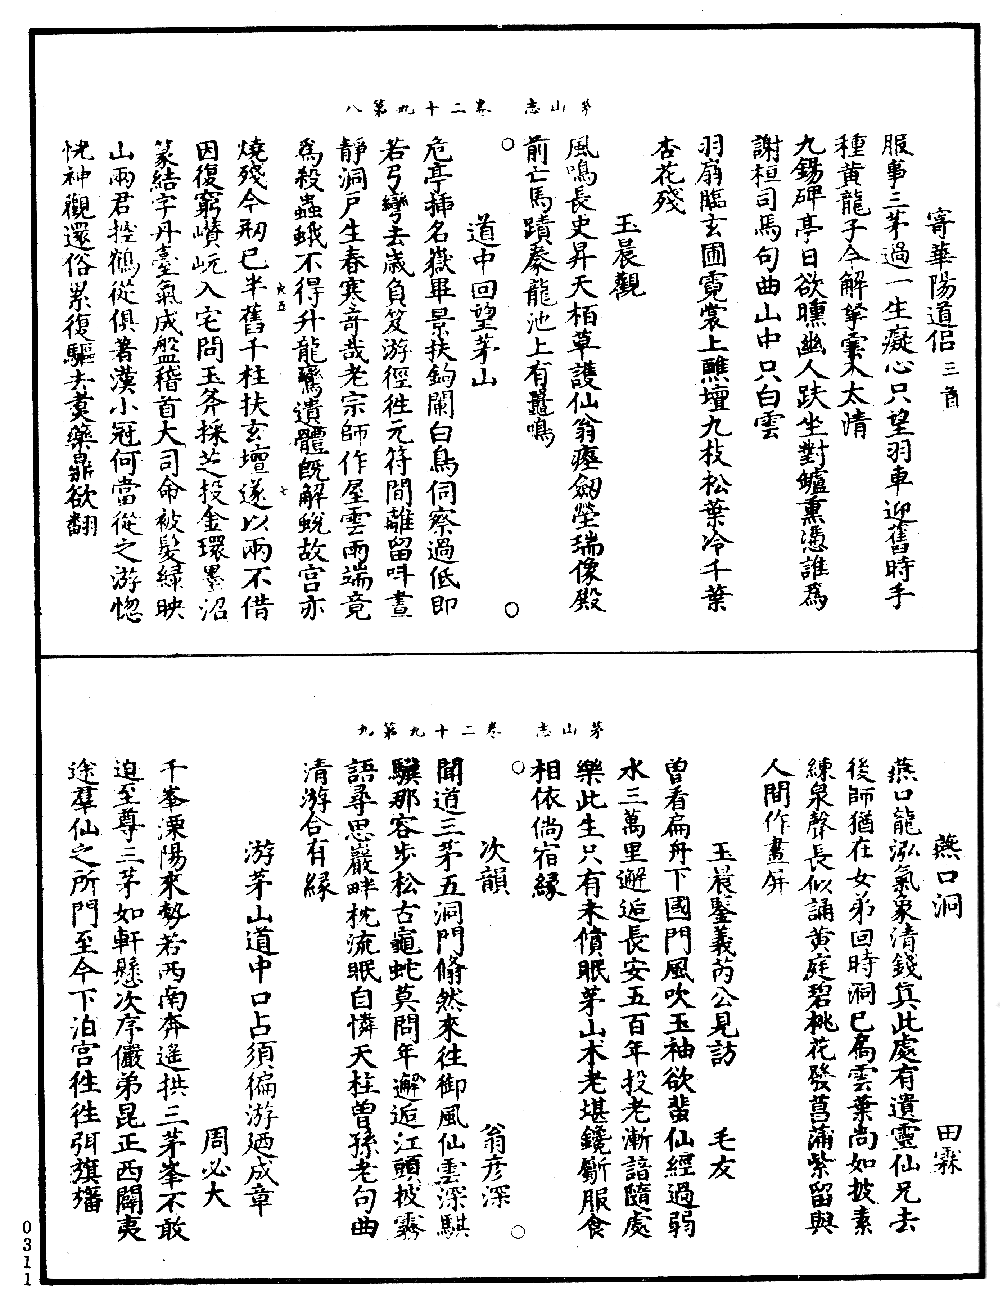 茅山志　卷二十九第八
寄華陽道侶三首
服事三茅過一生癡心只望羽車迎舊時手
種黃龍子今解拏雲木太清
九錫碑亭日欲曛幽人趺坐對爐熏憑誰爲
謝桓司馬句曲山中只白雲
羽扇臨玄圃霓裳上醮壇九枝松葉冷千葉
杏花殘
玉晨觀
風鳴長史昇天栢草護仙翁瘞劒瑩瑞像殿
前亡馬蹟豢龍池上有鼉鳴
道中回望茅山
危亭揷名嶽畢景扶鉤闌白鳥伺察過低即
若弓彎去歲負笈游徑徃元符間離留呌晝
靜洞戶生春寒奇哉老宗師作屋雲雨端竟
爲殺蟲蛾不得升龍鸞遺體旣解蛻故宮亦
燒殘今刱已半舊千柱扶玄壇遂以兩不借
因復窮巑岏入宅問玉斧採芝投金環墨沼
篆結字丹臺氣成盤稽首大司命被髮綠映
山兩君控鶴從俱著漢小冠何當從之游惚
恍神觀還俗累復驅去煑藥鼎欲翻
茅山志　卷二十九第九
燕口洞　田霖
燕口龍泓氣象清錢眞此處有遺靈仙兄去
後師猶在女弟回時洞已扃雲葉尚如披素
練泉聲長似誦黃庭碧桃花發菖蒲紫留與
人間作畫屏
玉晨鑒義芮公見訪　毛友
曾看扁舟下國門風吹玉袖欲蜚仙經過弱
水三萬里邂逅長安五百年投老漸諳隨處
樂此生只有未償眠茅山朮老堪鑱斸服食
相依倘宿緣
次韻　翁彥深
聞道三茅五洞門翛然來徃御風仙雲深騏
驥那容步松古龜蛇莫問年邂逅江頭披霧
語尋思巖畔枕流眠自憐天柱曾孫老句曲
清游合有緣
游茅山道中口占須徧游廼成章
周必大
千峯溧陽來勢若西南奔遙拱三茅峯不敢
迫至尊三茅如軒懸次序儼弟昆正西闢夷
途羣仙之所門至今下泊宮徃徃弭旗旛
0311